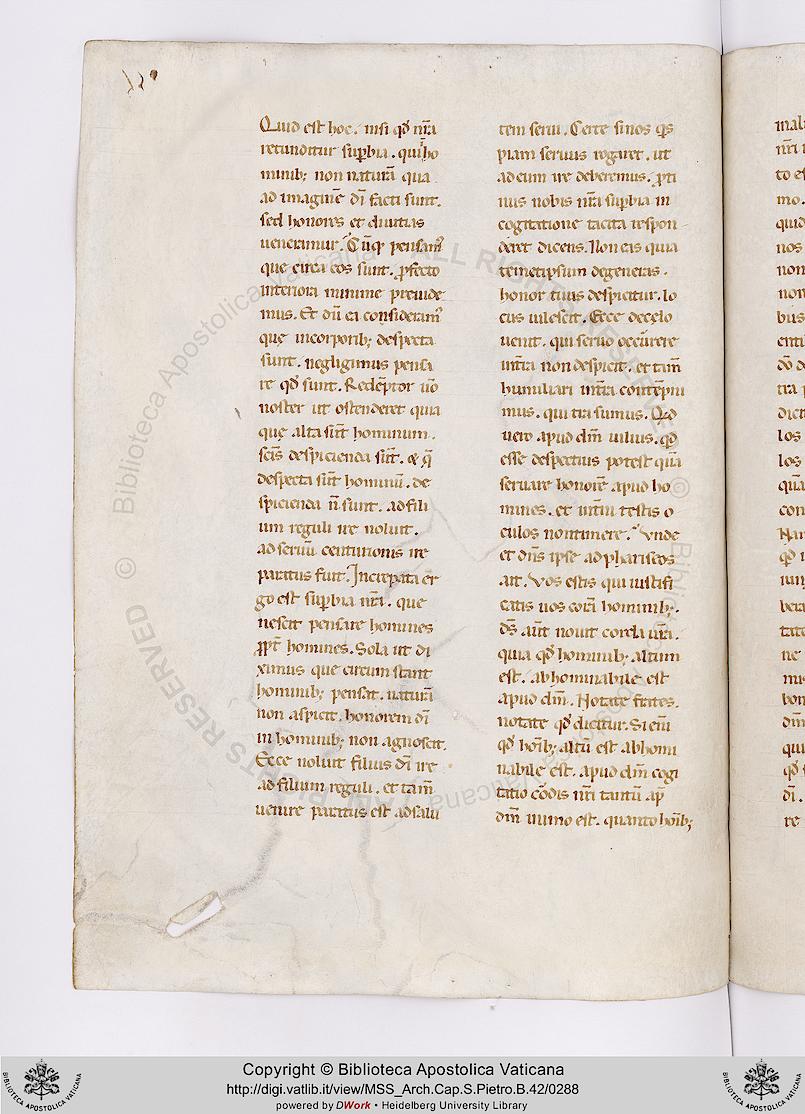 Quid est hoc. nisi qđ nr̄a
retunditur sup̱bia. qui ho
minib; non naturā qua
ad imaginē dī facti sunt.
sed honores et diuitias
ueneramur. Cūq; pensam᷒
que circa eos sunt. ꝓfecto
interiora minime preuide
mus. Et dū ea consideram᷒
que in corporib; despecta
sunt. negligimus pensa
re qđ sunt. Redēptor ūo
noster ut ostenderet quia
que alta sūt hominum.
scīs despicienda sūt. & q̄
despecta sūt hominū. de
spicienda ñ sunt. ad fili
um reguli ire noluit.
ad seruū centurionis ire
paratus fuit. Increpata eř
go est sup̱bia nr̄a. que
nescit pensare homines
ꝓpt̄ homines. Sola ut di
ximus que circum stant
hominib; pensat. naturā
non aspicit. honorem dī
in hominib; non agnoscit.
Ecce noluit filius dī ire
ad filium reguli. et tam̄
uenire paratus est ad salu
tem serui. Certe si nos q̱s
piam seruus rogaret. ut
ad eum ire deberemus. ꝓti
nus nobis nr̄a sup̱bia in
cogitatione tacita respon
deret dicens. Non eas quia
temetipsum degeneras.
honor tuus despicitur. lo
cus uilescit. Ecce de celo
uenit. qui seruo occūrere
in tr̄a non despicit. et tam̄
humiliari in tr̄a contēpni
mus. qui tr̄a sumus. Qđ
uero apud dm̄ uilius. qđ
esse despectius potest quā
seruare honorē apud ho
mines. et intīni testis o
culos non timere. Vnde
et dn̄s ipse ad phariseos
ait. Vos estis qui iustifi
catis uos corā hominib;.
dš aūt nouit corda ur̄a.
quia qđ hominib; altum
est. abhominabile est
apud dm̄. Notate fr̄es.
notate qđ dicitur. Si enī
qđ hoīb; altū est abhomi
nabile est. apud dm̄ cogi
tatio cōdis nr̄i tantū ap̄
dm̄ in imo est. quanto hoīb;
Copyright © Biblioteca Apostolica Vaticana
http://digi.vatlib.it/view/MSS_Arch.Cap.S.Pietro.B.42/0288
powered by DWork • Heidelberg University Library